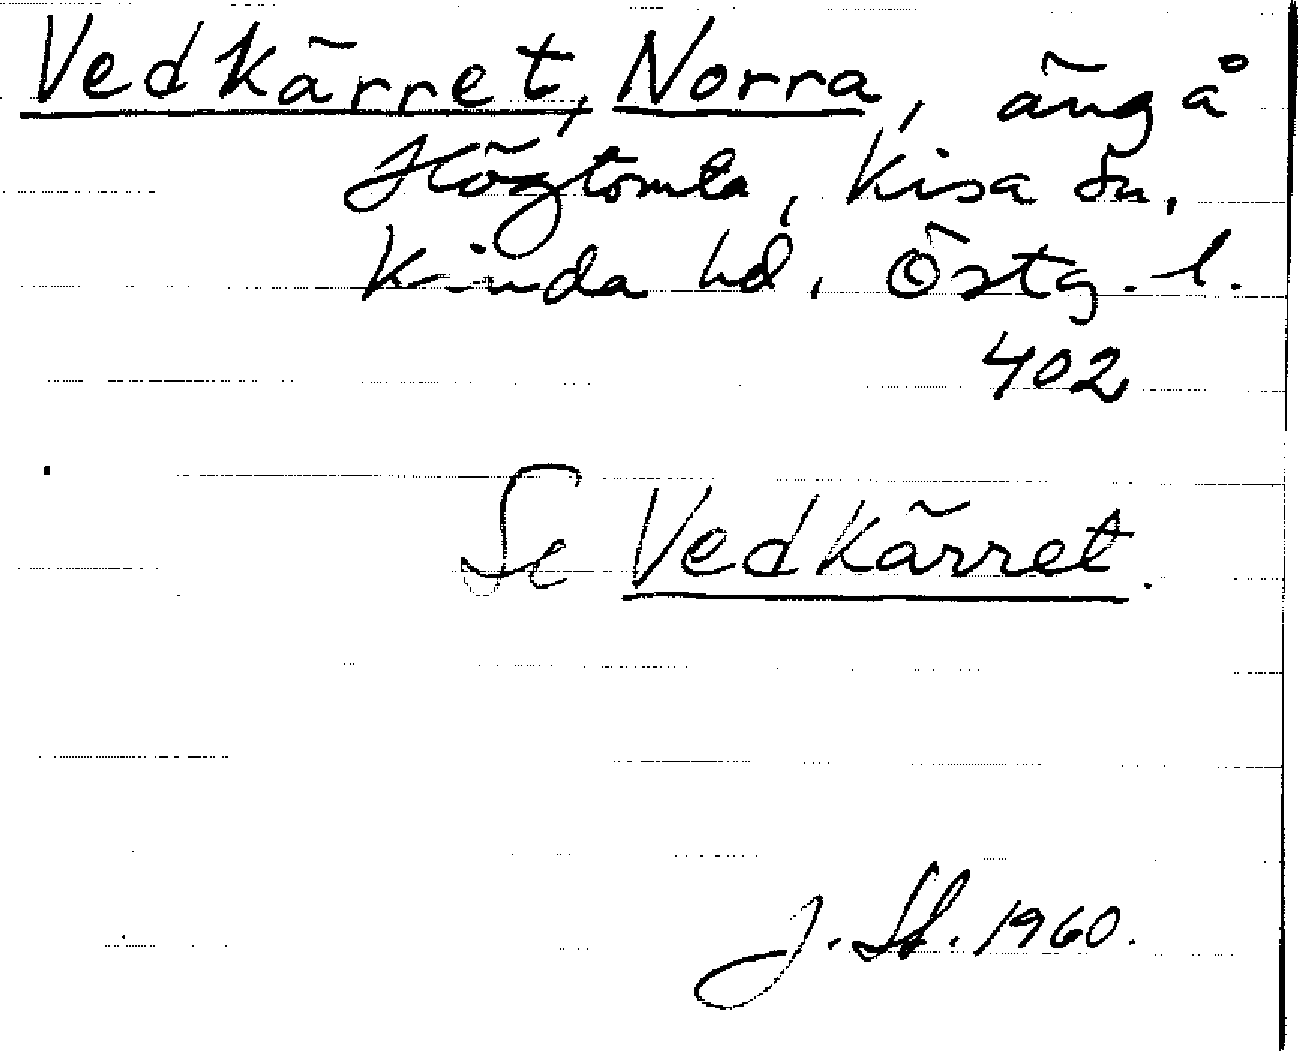 Vedkärret, Norra, äng å
Högtomta, Kisa sn,
Kinda hd, Östg. l.
402
Se Vedkärret.
J. St. 1960.